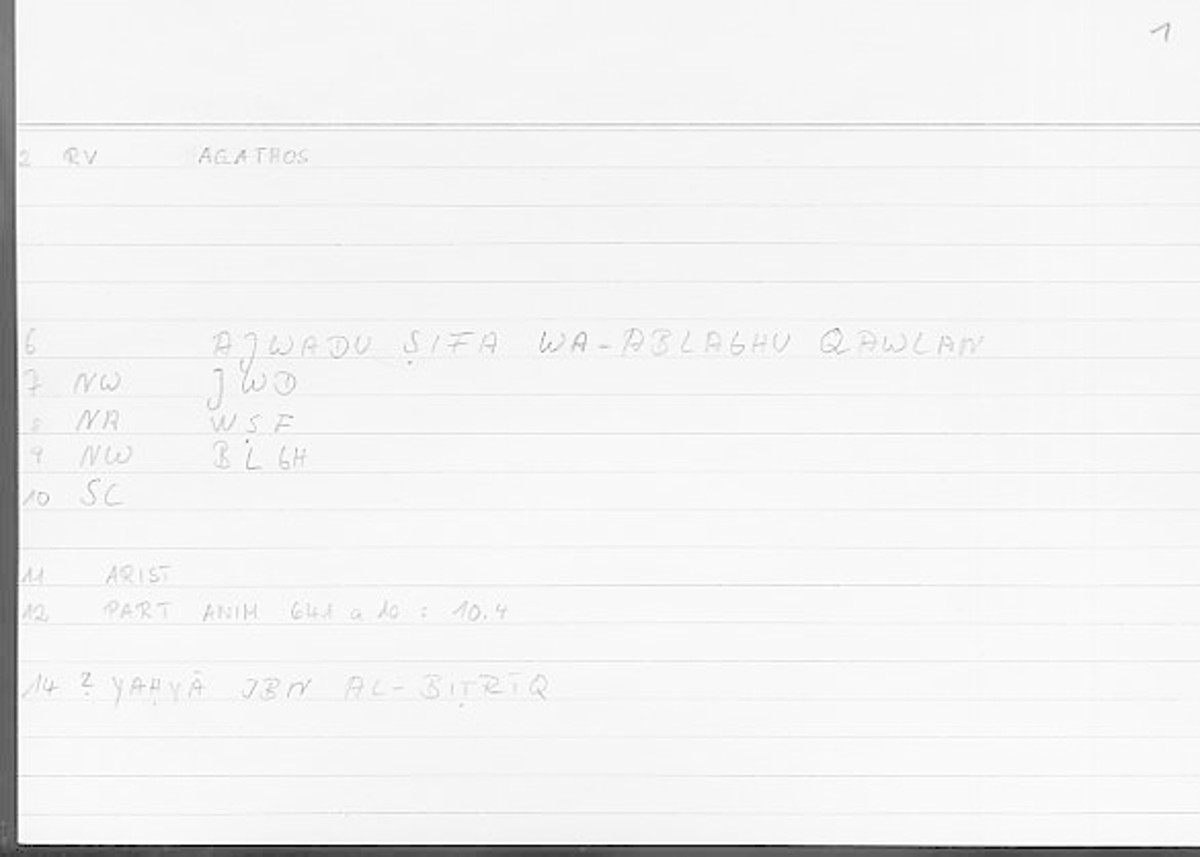 1
2 RV AGATHOS
6 AJWADU ṢIFA WA-ABLAGHU QAWLAN
7 NW JWD
8 NA WṢF
9 NW BLGH
10 SC
11 ARIST
12 PART ANIM 641 a 10 : 10.4
14 ? YAḤYĀ IBN AL-BIṬRĪQ